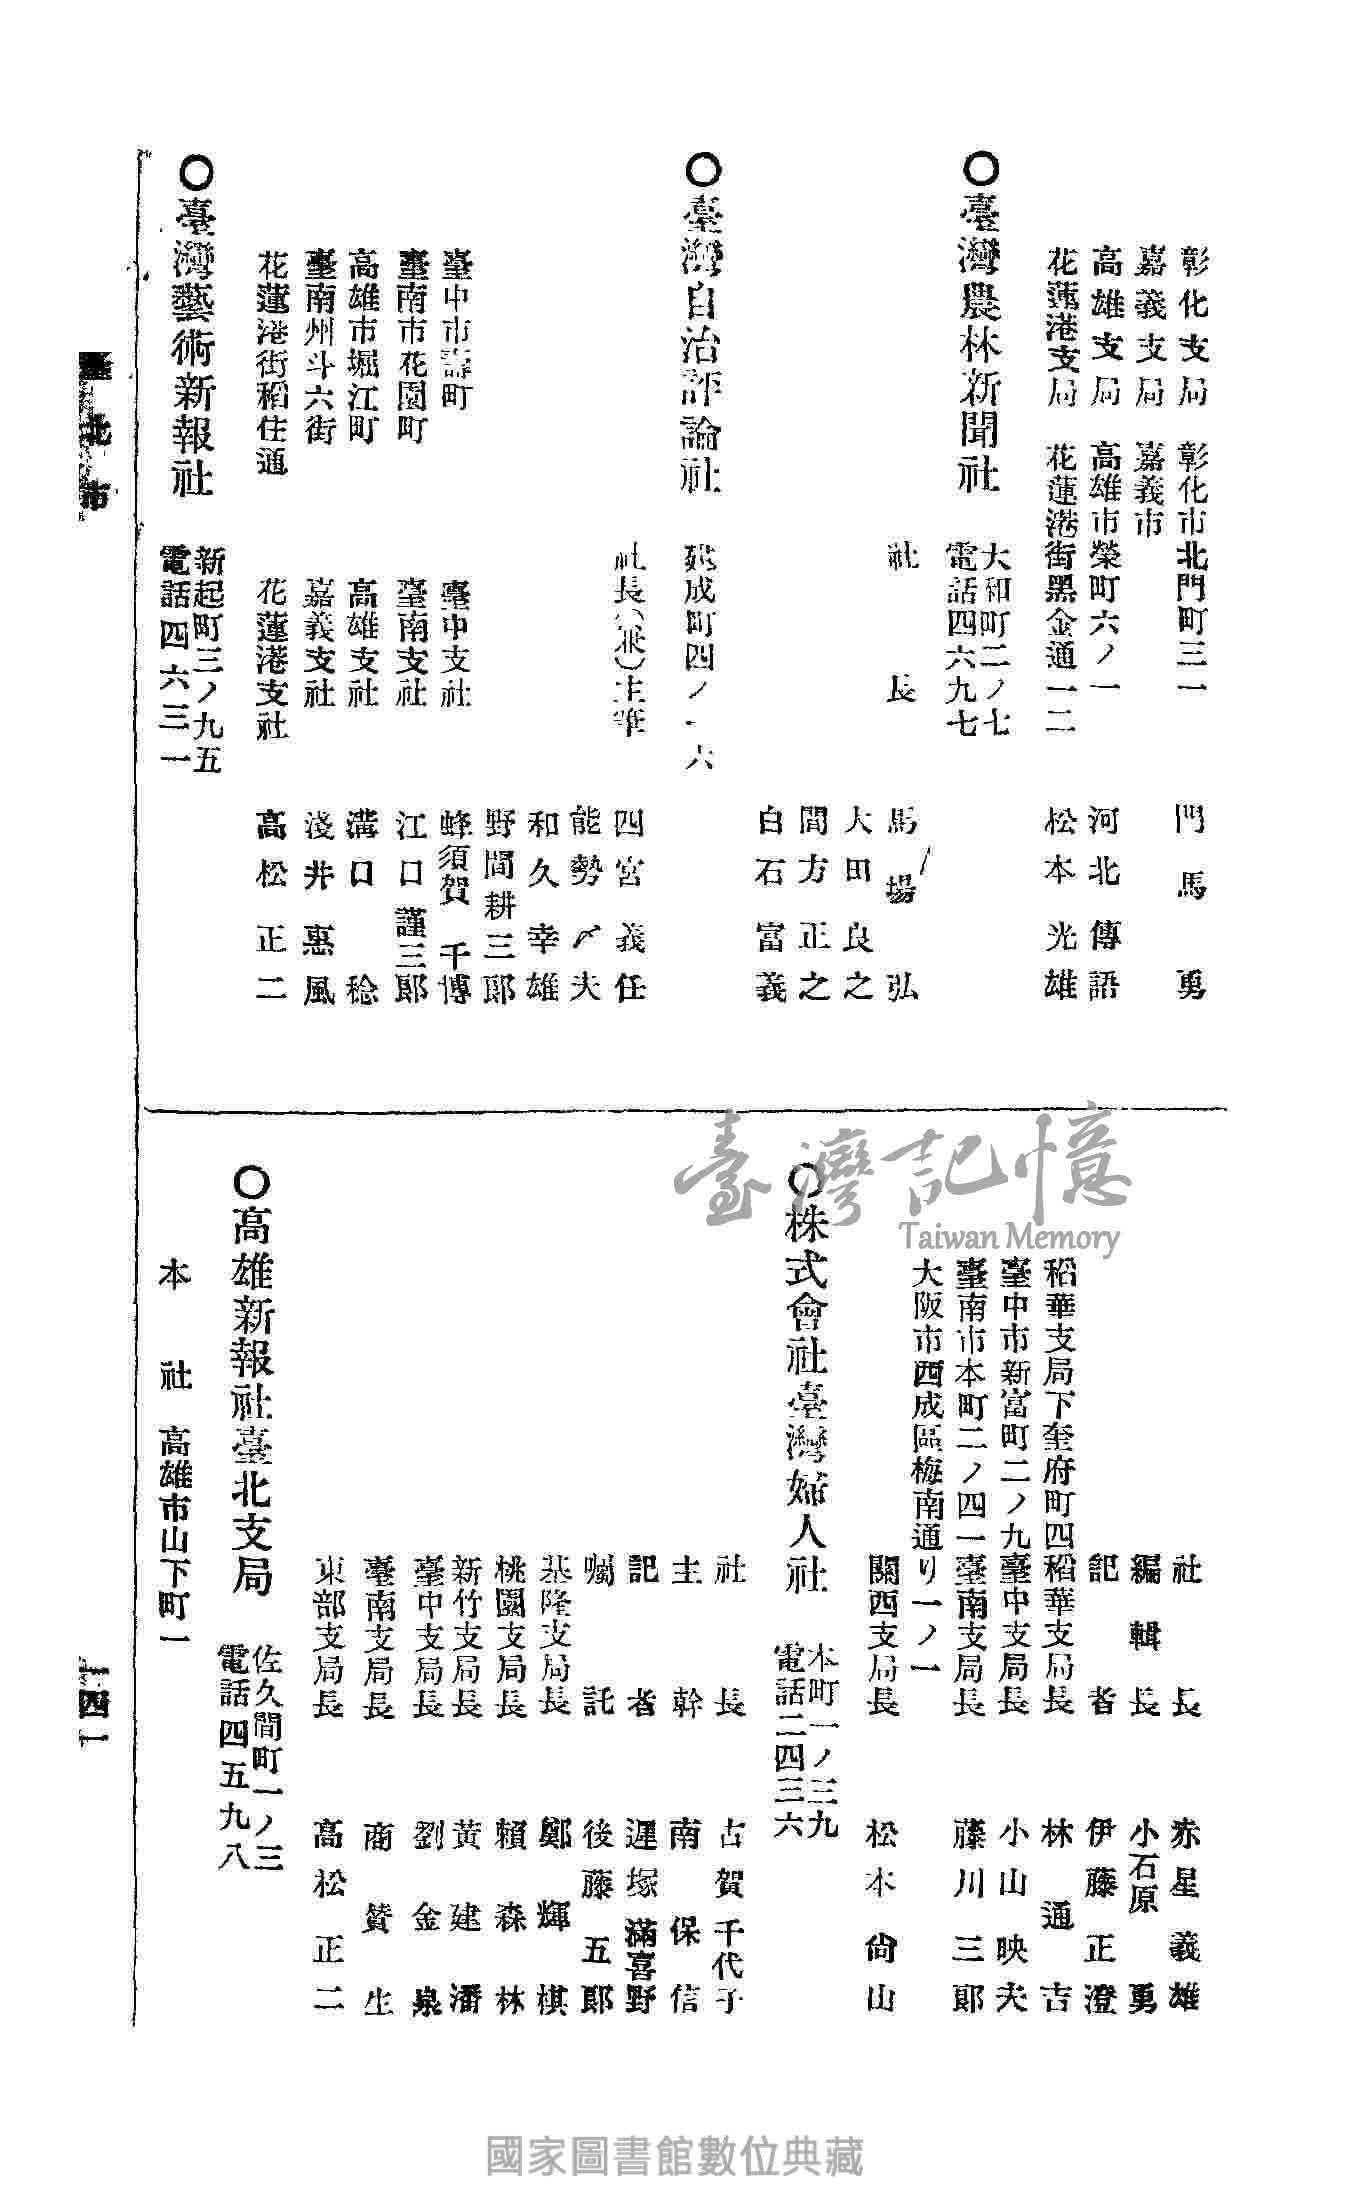 彰化支局 彰化市北門町三一 門馬勇
嘉義支局 嘉義市
高雄支局 高雄市榮町六ノ一 河北傳語
花蓮港支局 花蓮港街黑金通一二 松本光雄
○臺灣農林新聞社 大和町二ノ七
電話四六九七
社長 馬場弘
大田良之
間方正之
白石富義
○臺灣自治評論社 成町四ノ一六
社長(兼)主筆 四宮義任
能勢〆夫
和久幸雄
野間耕三郎
臺中市壽町 臺中支社 蜂須賀千博
臺南市花園町 臺南支社 江口謹三郎
高雄市堀江町 高雄支社 溝口稔
臺南州斗六街 嘉義支社 淺井惠風
花蓮港街稻住通 花蓮港支社 高松正二
○臺灣藝術新報社 新起町三ノ九五
電話四六三一
社長 赤星義雄
編輯長 小石原勇
記者 伊藤正澄
稻華支局下奎府町四 稻華支局長 林通吉
臺中市新富町二ノ九 臺中支局長 小山映夫
臺南市本町二ノ四一 臺南支局長 藤川三郎
大阪市西成區梅南通リ一ノ一
關西支局長 松本尙山
○株式會社臺灣婦人社 本町一ノ三九
電話二四三六
社長 古賀千代子
主幹 南保信
記者 遲塚滿喜野
囑託 後藤五郎
基隆支局長 鄭輝棋
桃園支局長 賴森林
新竹支局長 黃建潘
臺中支局長 劉金泉
臺南支局長 商贊生
東部支局長 高松正二
○高雄新報社臺北支局 佐久間町一ノ三
電話四五九八
本社 高雄市山下町一
臺北市
一四一
臺灣記憶
Taiwan Memory
國家圖書館數位典藏